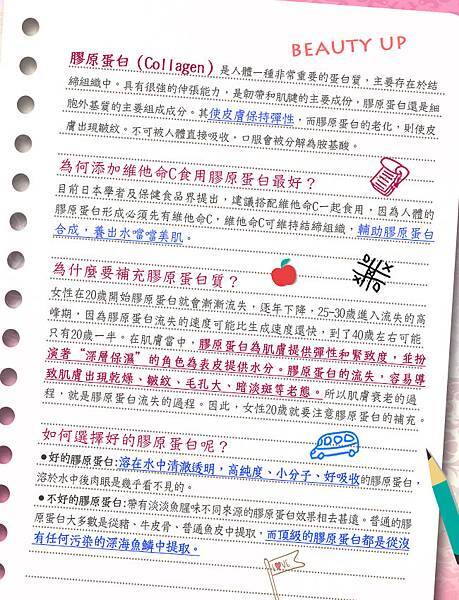 BEAUTY UP
膠原蛋白（Collagen）是人體一種非常重要的蛋白質，主要存在於結
締組織中。具有很強的伸張能力，是韌帶和肌腱的主要成份，膠原蛋白還是細
胞外基質的主要組成成分。其使皮膚保持彈性，而膠原蛋白的老化，則使皮
膚出現皺紋。不可被人體直接吸收，口服會被分解為胺基酸。
為何添加維他命C食用膠原蛋白最好？
目前日本學者及保健食品界提出，建議搭配維他命C一起食用，因為人體的
膠原蛋白形成必須先有維他命C，維他命C可維持結締組織，輔助膠原蛋白
合成，養出水噹噹美肌。
為什麼要補充膠原蛋白質？
女性在20歲開始膠原蛋白就會漸漸流失，逐年下降，25-30歲進入流失的高
峰期，因為膠原蛋白流失的速度可能比生成速度還快，到了40歲左右可能
只有20歲一半。在肌膚當中，膠原蛋白為肌膚提供彈性和緊致度，並扮
演著“深層保濕”的角色為表皮提供水分。膠原蛋白的流失，容易導
致肌膚出現乾燥、皺紋、毛孔大、暗淡斑等老態。所以肌膚衰老的過
程，就是膠原蛋白流失的過程。因此，女性20歲就要注意膠原蛋白的補充。
如何選擇好的膠原蛋白呢？
●好的膠原蛋白:溶在水中清澈透明，高純度、小分子、好吸收的膠原蛋白，
溶於水中後肉眼是幾乎看不見的。
●不好的膠原蛋白:帶有淡淡魚腥味不同來源的膠原蛋白效果相去甚遠。普通的膠
原蛋白大多數是從豬、牛皮骨、普通魚皮中提取，而頂級的膠原蛋白都是從沒
有任何污染的深海魚鱗中提取。
LOVE